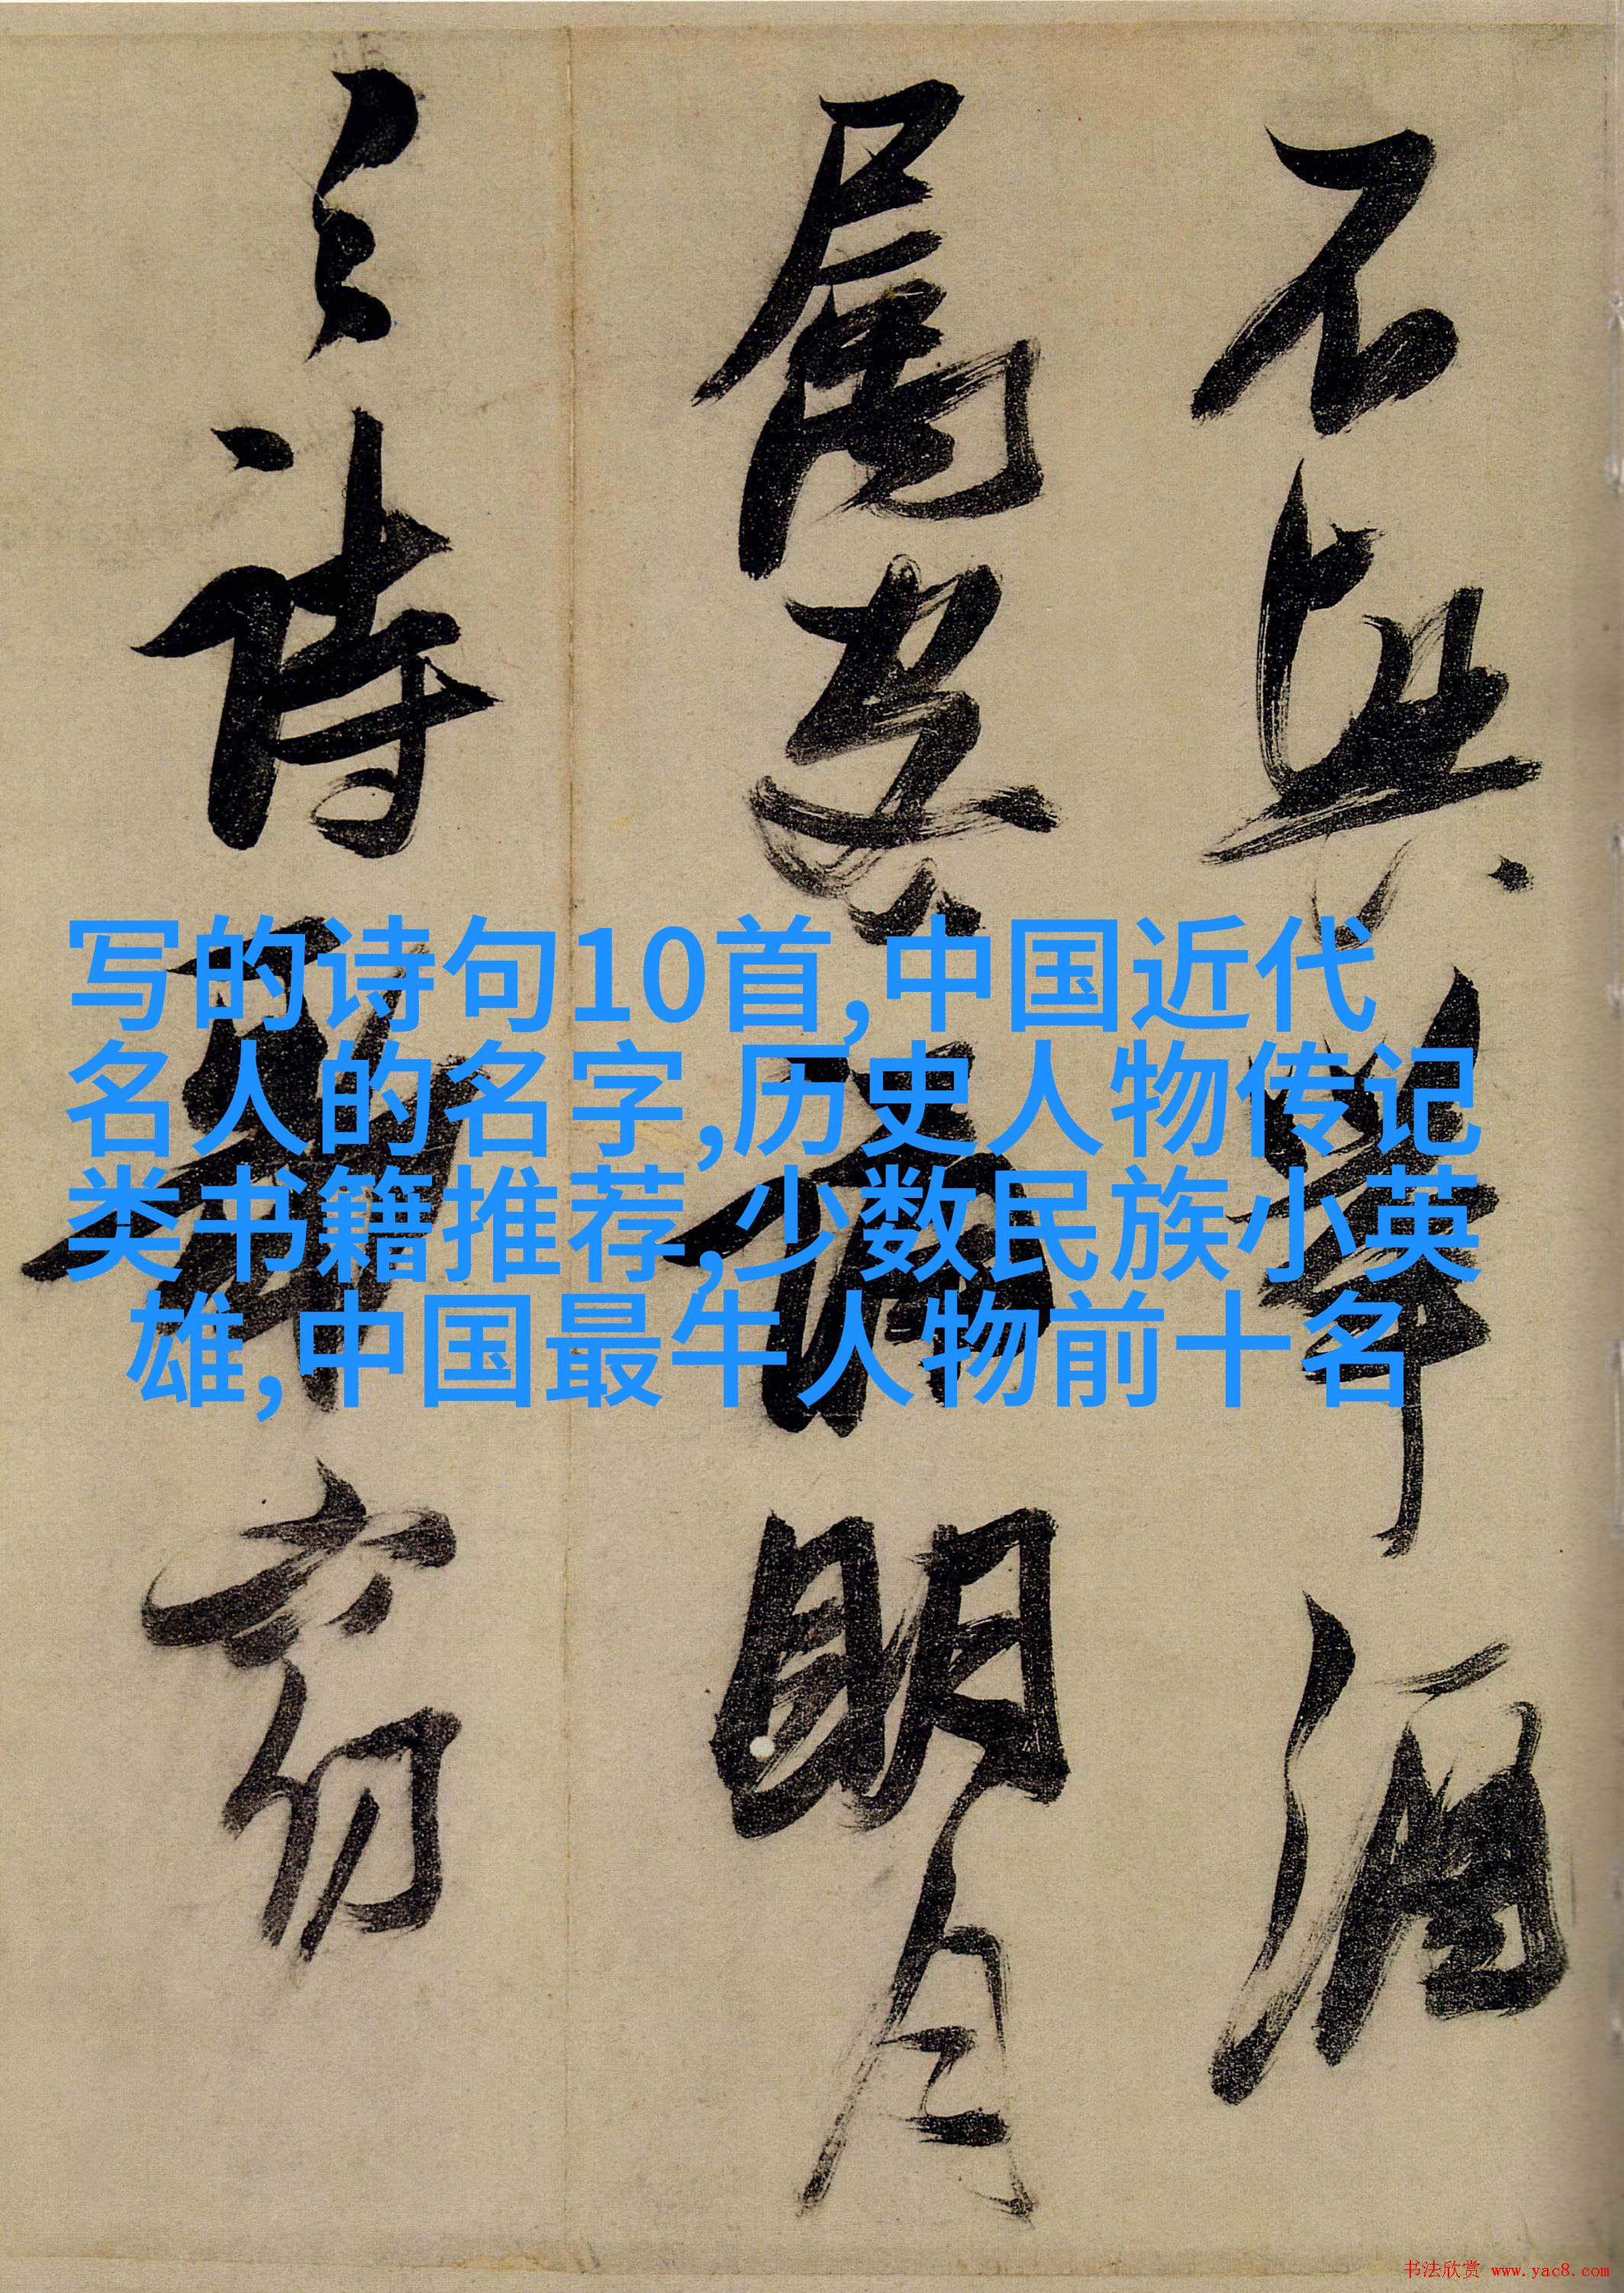 不与举酒
属客诵明月
之诗歌窈
写的诗句10首,中国近代
名人的名字,历史人物传记
类书籍推荐,少数民族小英
雄,中国最牛人物前十名
书法欣赏 www.yac8.com